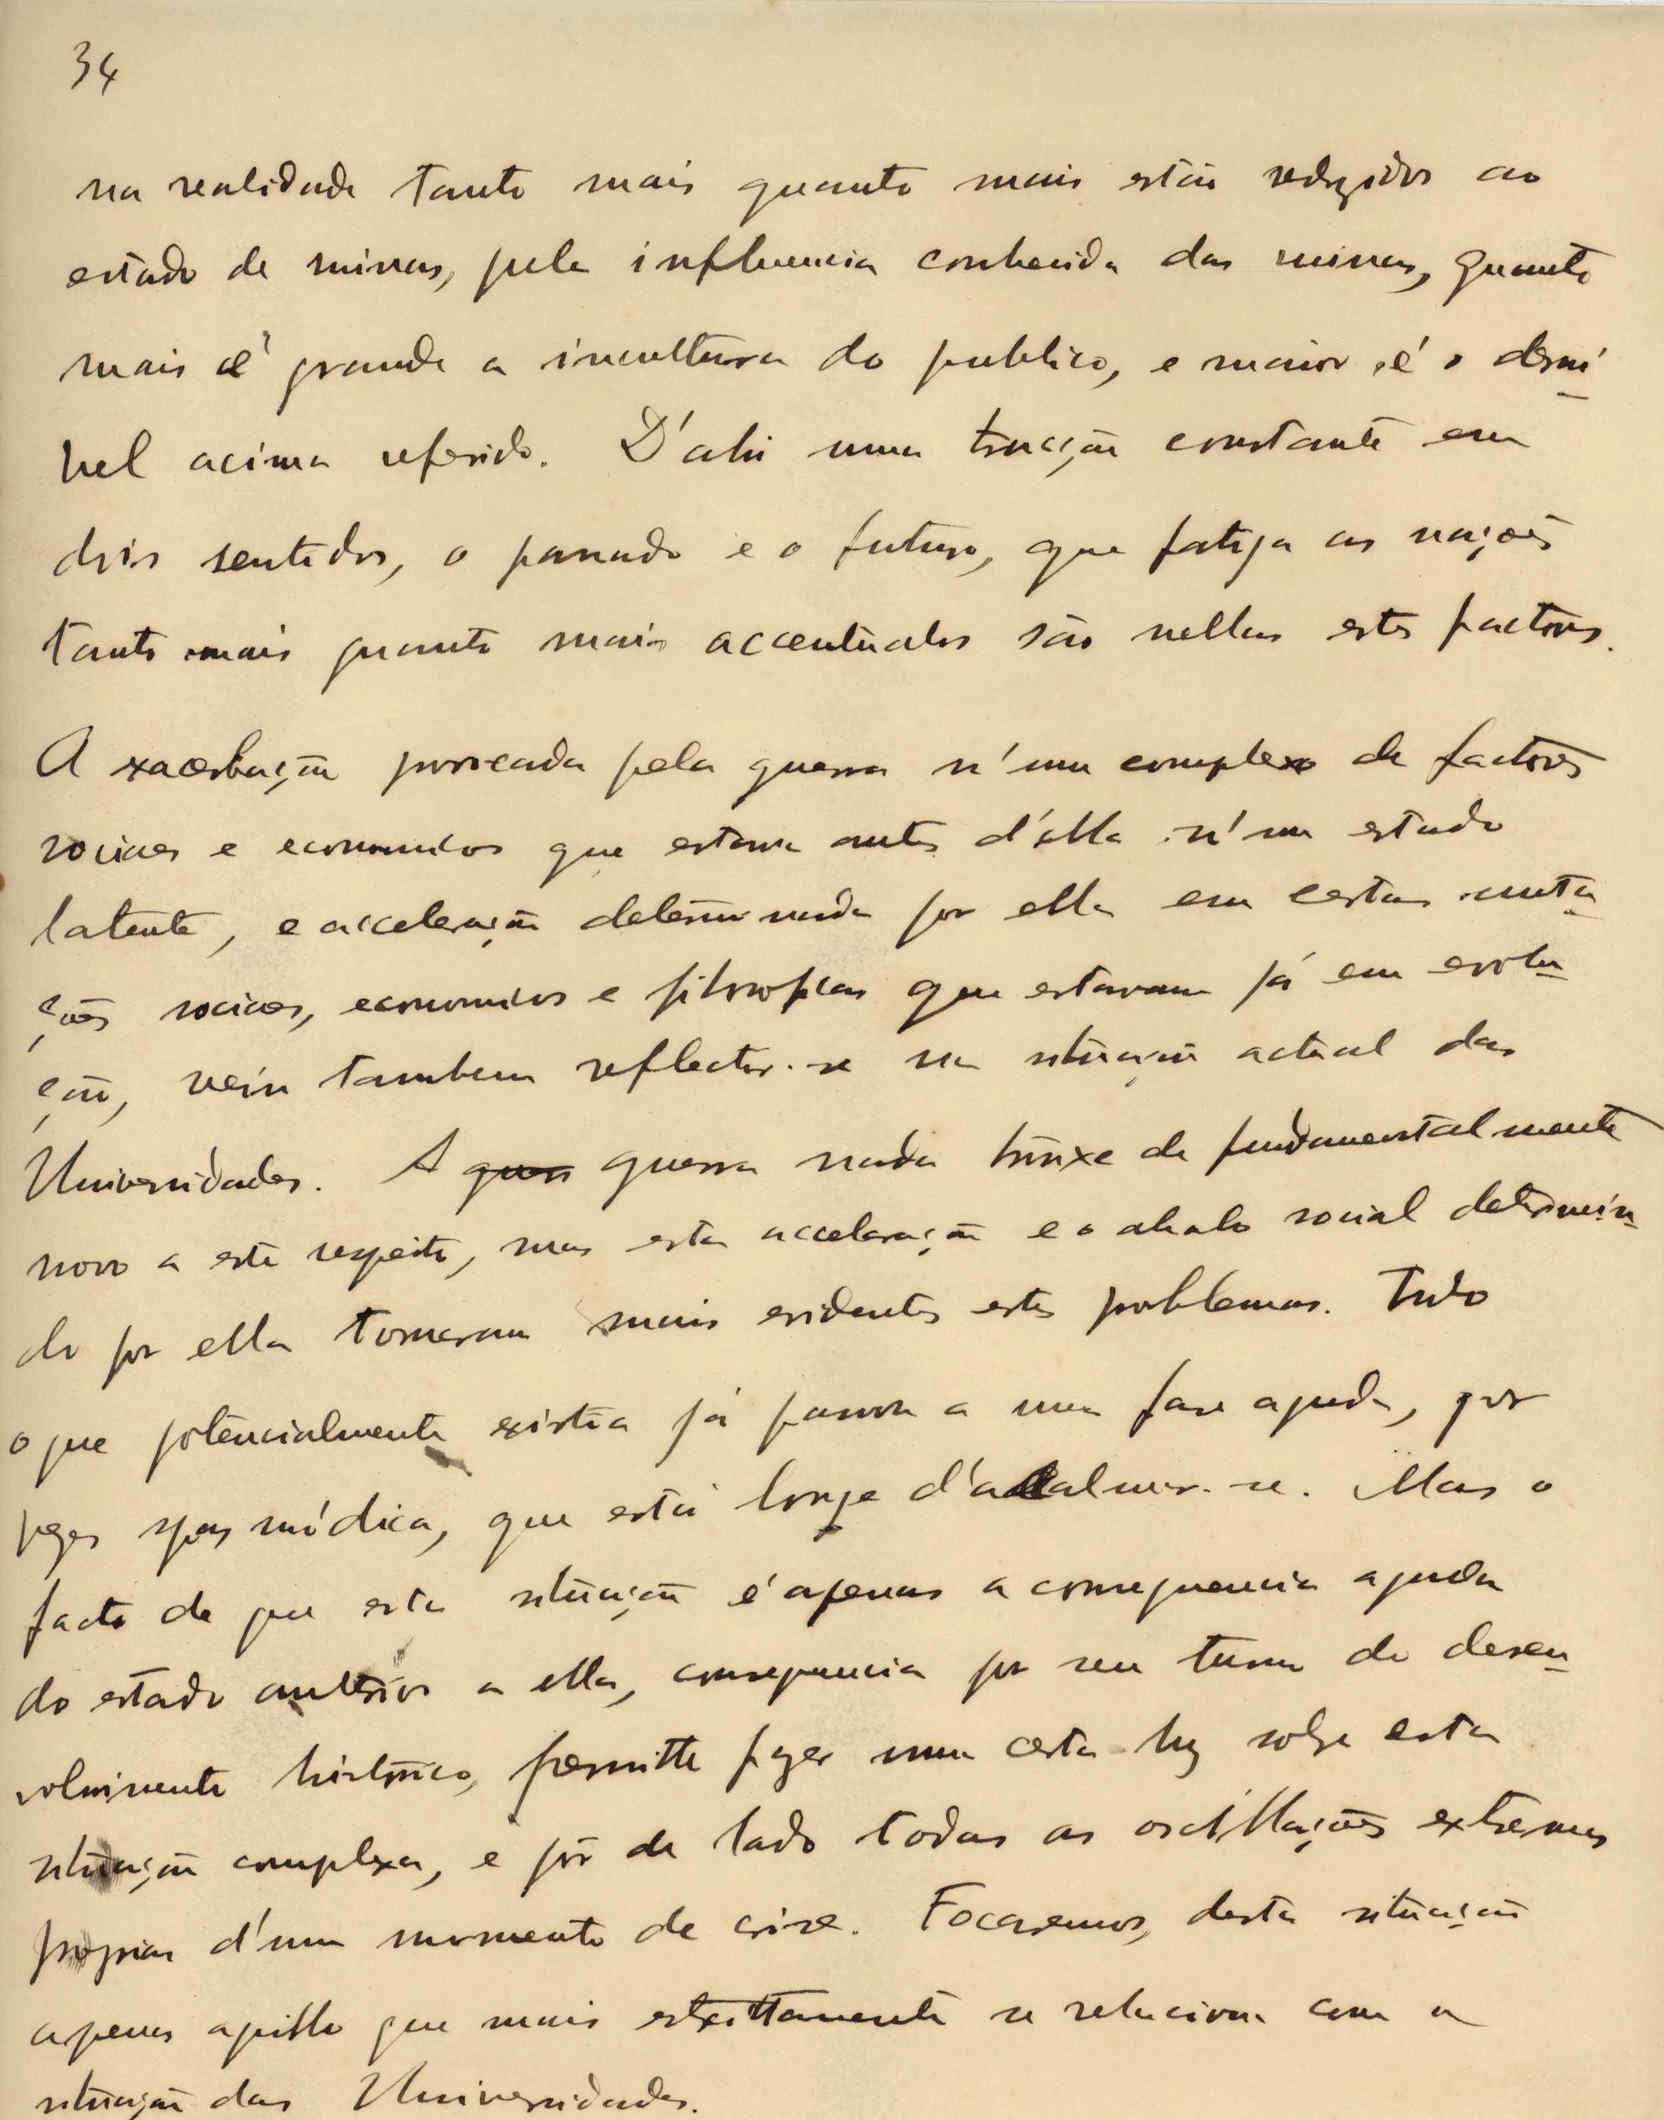 34
na realidade tanto mais quanto mais estão reduzidos ao
estado de ruinas, pela influencia conhecida das ruinas, quanto
mais é grande a incultura do publico, e maior é o desni-
vel acima referido. D'ahi uma tracção constante em
dois sentidos, o passado e o futuro, que fatiga as nações
tanto mais quanto mais accentuados são nellas estes factores.
A exacerbação provocada pela guerra n'um complexo de factores
sociaes e economicos que estava antes d'ella n'um estado
latente, e acceleração determinada por ella em certas muta-
ções sociaes, economicas e filosoficas que estavam já em evolu-
ção, veiu tambem reflectir-se na situação actual das
Universidades. A guerra nada trouxe de fundamentalmente
novo a este respeito, mas esta acceleração e o abalo social determina-
do por ella tornaram mais evidentes estes problemas. Tudo
o que potencialmente existia já passou a uma fase aguda, por
vezes spasmódica, que está longe d'acalmar-se. Mas o
facto de que esta situação é apenas a consequencia aguda
do estado anterior a ella, consequencia por seu turno do desen-
volvimento historico, permitte fazer uma certa luz sobre esta
situação complexa, e pôr de lado todas as oscillações extremas
proprias d'um momento de crise. Focaremos, desta situação
apenas aquillo que mais estrittamente se relaciona com a
situação das Universidades.